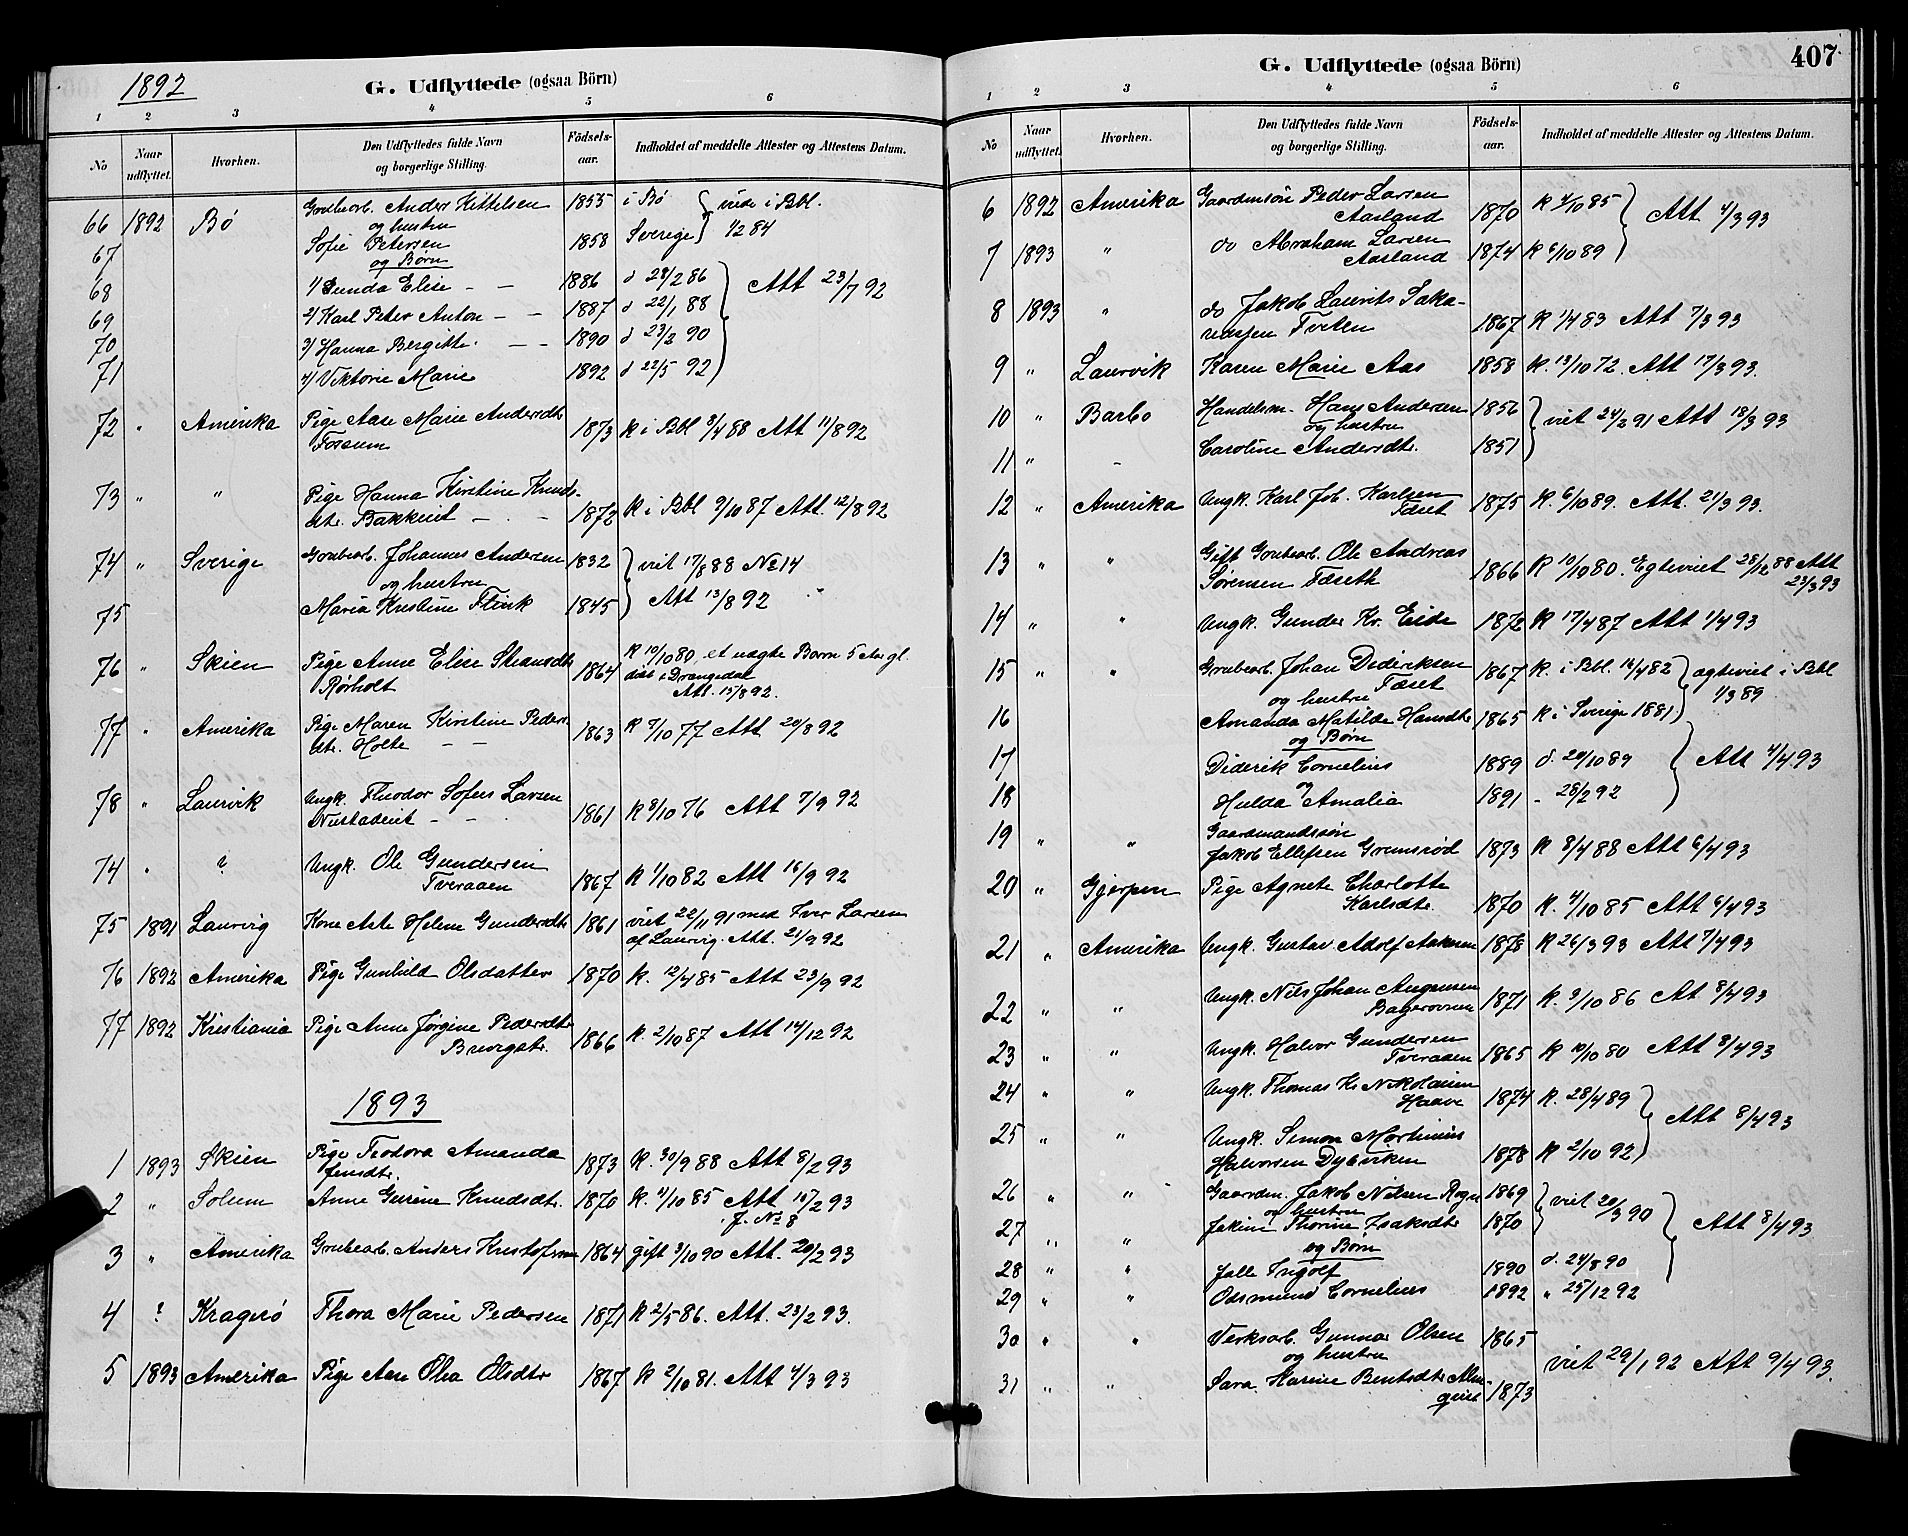 1892
G. Udflyttede (ogsaa Börn)
1 2 3 4 5 6
No Naar udflyttet. Hvorhen. Den Udflyttedes fulde Navn og borgerlige Stilling. Födsels-aar. Indholdet af meddelte Attester og Attestens Datum.
66 1892 Bö Grubearb. Anders Kittelsen 1855 i Bö
og hustru
67 Sofie Petersen 1858 Sverige 1/2 84
og Børn
68 1/ Gunda Elise – – 1886 d 28/2 86 Att 23/7 92
69 2/ Karl Peter Anton – – 1887 d 22/1 88
70 3/ Hanna Bergitte – – 1890 d 23/2 90
71 4/ Viktorie Marie 1892 d 22/5 92
72 " Amerika Pige Aase Marie Andersdtr 1873 K i Bbl 8/4 88 Att 11/8 92
Fossum
73 " " Pige Hanna Kirstine Knuds-
dtr. Bakkeiet – – 1872 K i Bbl 9/10 87 Att. 12/8 92
74 " Sverige Grubearb. Johannes Andersen 1832 viet 17/8 88 No 14
og hustru
75 Maria Kristine Flink 1845 Att 13/8 92
76 " Skien Pige Anne Elise Steansdtr 1864 K 10/10 80, et uægte Barn 5 Aar gl.
Rørholt i Drangedal
Att. 15/8 92.
77 " Amerika Pige Maren Kirstine Peders
dtr. Holte – – 1863 K 7/10 77 Att 20/8 92
78 " Laurvik Ungk. Theodor Sofus Larsen 1861 K 8/10 76 Att 7/9 92
74 " ? Ungk. Ole Gundersen
Tveraaen 1867 K 1/10 82 Att 16/9 92
75 1891 Laurvig Kone Aste Helene Gundersdtr 1861 viet 22/11 91 med Iver Larsen
af Laurvig. Att. 21/9 92
76 1892 Amerika Pige Gunhild Olsdatter 1870 K. 12/4 85 Att 23/9 92
77 1892 Kristiania Pige Anne Jörgine Pedersdtr
1866 K. 2/10 87 Att 14/12 92
1893
1 1893 Skien Pige Teodora Amanda
Jensdtr. 1873 K. 30/9 88 Att 8/2 93
2 " Solum Anne Gurine Knudsdtr. 1870 K. 11/10 85 Att 16/2 93
J. No 8
3 " Amerika Grubearb. Anders Kristofersen 1864 gift 3/10 90 Att. 20/2 93
4 ? Kragerö Thora Marie Pedersen 1871 K 2/5 86. Att. 23/2 93.
5 1893 Amerika Pige Aase Olea Olsdtr 1867 K 2/10 81. Att 4/3 93
407
G. Udflyttede (ogsaa Börn)
1 2 3 4 5 6
No Naar udflyttet. Hvorhen. Den Udflyttedes fulde Navn og borgerlige Stilling. Födsels-aar. Indholdet af meddelte Attester og Attestens Datum.
6 1892 Amerika Gaardmsön Peder Larsen
Aasland 1870 K 4/10 85 Att 4/3 93
7 1893 " do Abraham Larsen
Aasland 1874 K 6/10 89
8 1893 " do Jakob Laurits Saka-
riassen Tveten 1867 K 1/4 83 Att 7/3 93
9 " Laurvik Karen Marie Aas 1858 K. 13/10 72. Att 17/3 93.
10 " Barbo Handelsm. Hans Andersen 1856 viet 24/2 91 Att 18/3 93
og hustru
11 " – Caroline Andersdtr. 1851
12 " Amerika Ungk. Karl Joh. Karlsen 1875 K. 6/10 89. Att. 21/3 93.
Fæset
13 " " Gift Grubearb. Ole Andreas
Sørensen Fæseth 1866 K 10/10 80. Egteviet 28/12 88 Att
23/3 93
14 " " Ungk. Gunder Kr. Eide 1872 K 17/4 87 Att 1/4 93
15 " " Grubearb. Johan Dideriksen 1867 K. i Bbl. 16/4 82 ægteviet i Bbl
Fæset 1/3 89
og hustru
16 Amanda Matilde Hansdtr 1865 K i Sverige 1881
og Børn
17 Diderik Cornelius 1889 d. 20/10 89 Att 4/4 93
18 Hulda Amalia 1891 – 28/2 92
19 " " Gaardmandssön
Jakob Ellefsen Gromsrød 1873 K 8/4 88 Att 6/4 93
20 " Gjerpen Pige Agnete Charlotte
Karlsdtr. 1870 K. 4/10 85 Att 6/4 93
21 " Amerika Ungk. Gustav Adolf 1878 K 26/3 93 Att 7/4 93
22 " " Ungk. Nils Johan
1871 K. 3/10 86 At 8/4 93
23 " " Ungk. Halvor Gundersen
Tveraaen 1865 K 10/10 80 Att 8/4 93
24 " " Ungk. Thomas Kr Nikolaisen
Haave 1874 K. 28/4 89 Att 8/4 93
25 " " Ungk. Simon Martinius
Halvorsen Dybviken 1878 K 2/10 92
26 " " Gaardm. Jakob Nilsen Rogn 1869 viet 20/3 90
og hustru
27 " " Jakine Thorine Isaksdtr 1870 Att 8/4 93
og Børn
28 " " Jalle Ingolf 1890 d. 24/8 90
29 " " Odsmund Cornelius 1892 " 25/12 92
30 " " Verksarb. Gunnar Olsen 1865
og hustru viet 29/1 92 Att 9/4 93.
31 " " Sara Karine Bentsdtr 1873